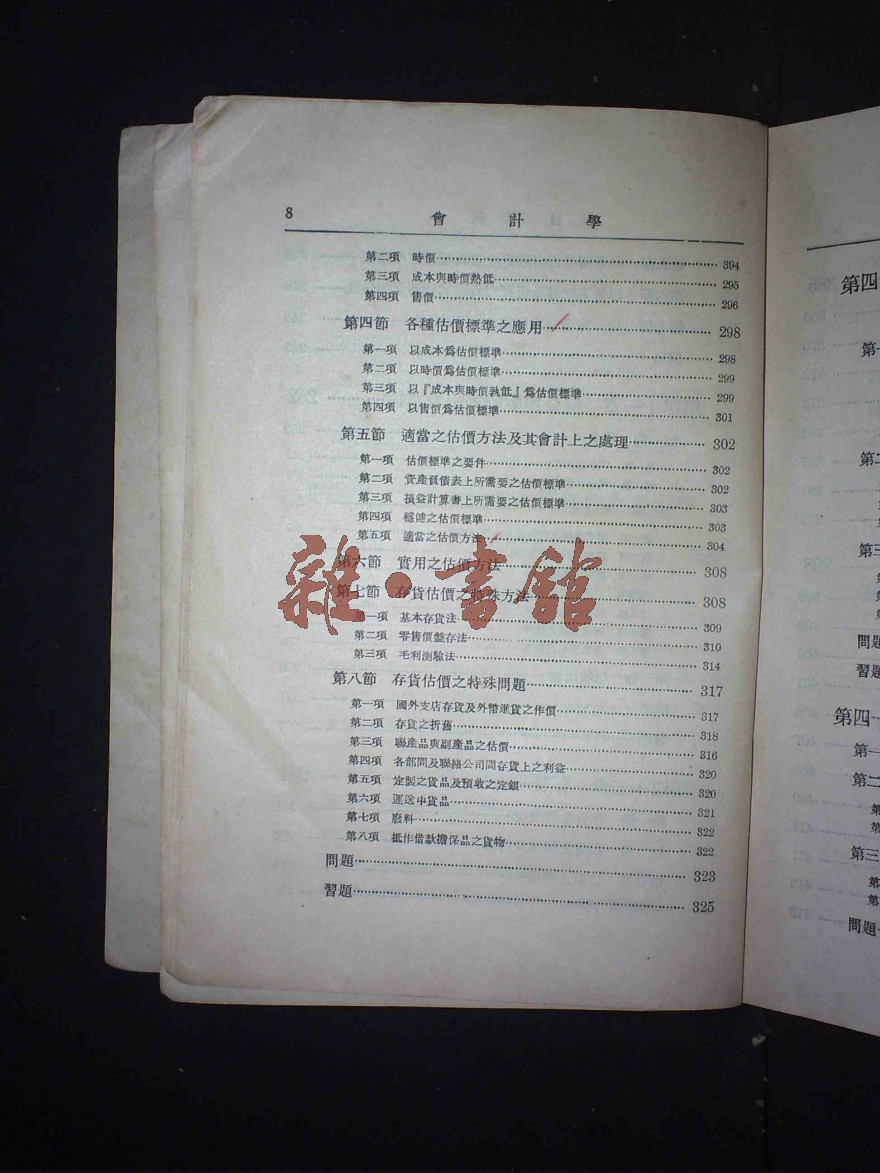 8 會計學
第二項 時價 394
第三項 成本與時價熟低 295
第四項 售價 296
第四節 各種估價標準之應用 298
第一項 以成本爲估價標準 298
第二項 以時價爲估價標準 299
第三項 以『成本與時價孰低』爲估價標準 299
第四項 以售價爲估價標準 301
第五節 適當之估價方法及其會計上之處理 302
第一項 估價標準之要件 302
第二項 資產負債表上所需要之估價標準 302
第三項 損益計算書上所需要之估價標準 303
第四項 穩健之估價標準 303
第五項 適當之估價方法 304
第六節 實用之估價方法 308
第七節 存貨估價之特殊方法 308
第一項 基本存貨法 309
第二項 零售價盤存法 310
第三項 毛利測驗法 314
第八節 存貨估價之特殊問題 317
第一項 國外支店存貨及外幣進貨之作價 317
第二項 存貨之折舊 318
第三項 聯產品與副產品之估價 316
第四項 各部間及聯絡公司間存貨上之利益 320
第五項 定製之貨品及預收之定銀 320
第六項 運送中貨品 321
第七項 廢料 322
第八項 抵作借款擔保品之貨物 322
問題 323
習題 325
雜·書館
第四
第一
第二
第三
問題
習題
第四十
第一
第二
第三
問題